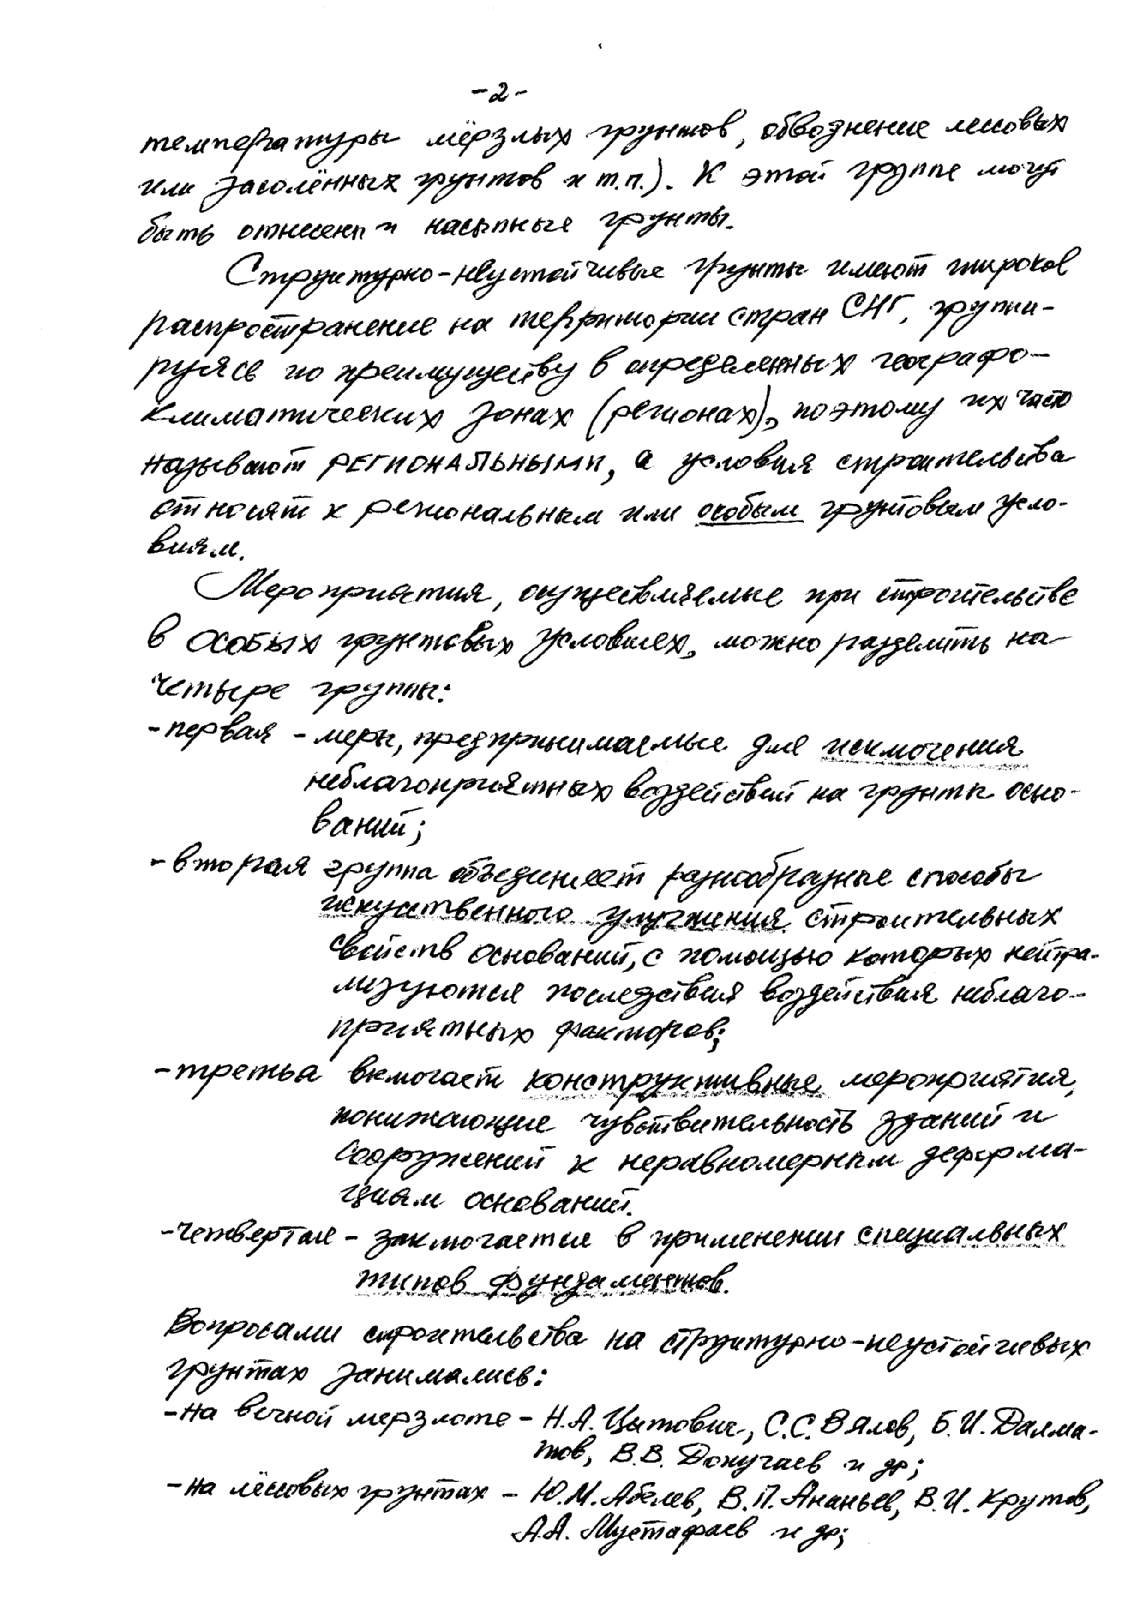 -2-
температуры мёрзлых грунтов, обводнение лессовых
или засолённых грунтов и т.п.). К этой группе могут
быть отнесены и насыпные грунты.
Структурно-неустойчивые грунты имеют широкое
распространение на территории стран СНГ, группи-
руясь по преимуществу в определенных географо-
климатических зонах (регионах), поэтому их часто
называют РЕГИОНАЛЬНЫМИ, а условия строительства
относят к региональным или особым грунтовым усло-
виям.
Мероприятия, осуществляемые при строительстве
в особых грунтовых условиях, можно разделить на
четыре группы:
-первая - меры, предпринимаемые для исключения
неблагоприятных воздействий на грунты осно-
ваний;
-вторая группа объединяет разнообразные способы
искуственного улучшения строительных
свойств оснований, с помощью которых нейтра-
лизуются последствия воздействия неблаго-
приятных факторов;
-третья включает конструктивные мероприятия,
понижающие чувствительность зданий и
сооружений к неравномерным деформа-
циям оснований.
-четвертая - заключается в применении специальных
типов фундаментов.
Вопросами строительства на структурно-неустойчивых
грунтах занимались:
-на вечной мерзлоте - Н.А. Цытович, С.С. Вялов, Б.И. Далма-
тов, В.В. Докучаев и др;
-на лёссовых грунтах - Ю.М. Абелев, В.П. Ананьев, В.И. Крутов,
А.А. Мустафаев и др;